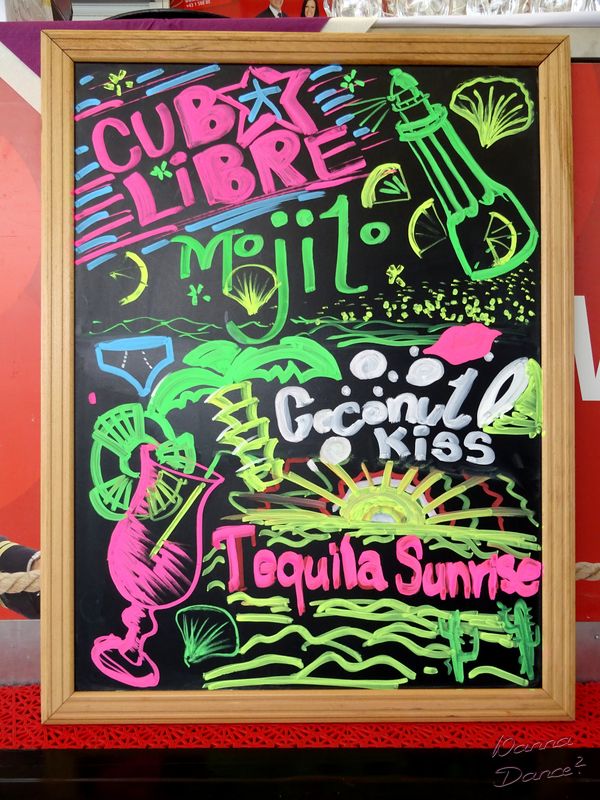 CUBA
LiBRE
Mojito
Coconut
KISS
Tequila Sunrise
Danna
Dance?